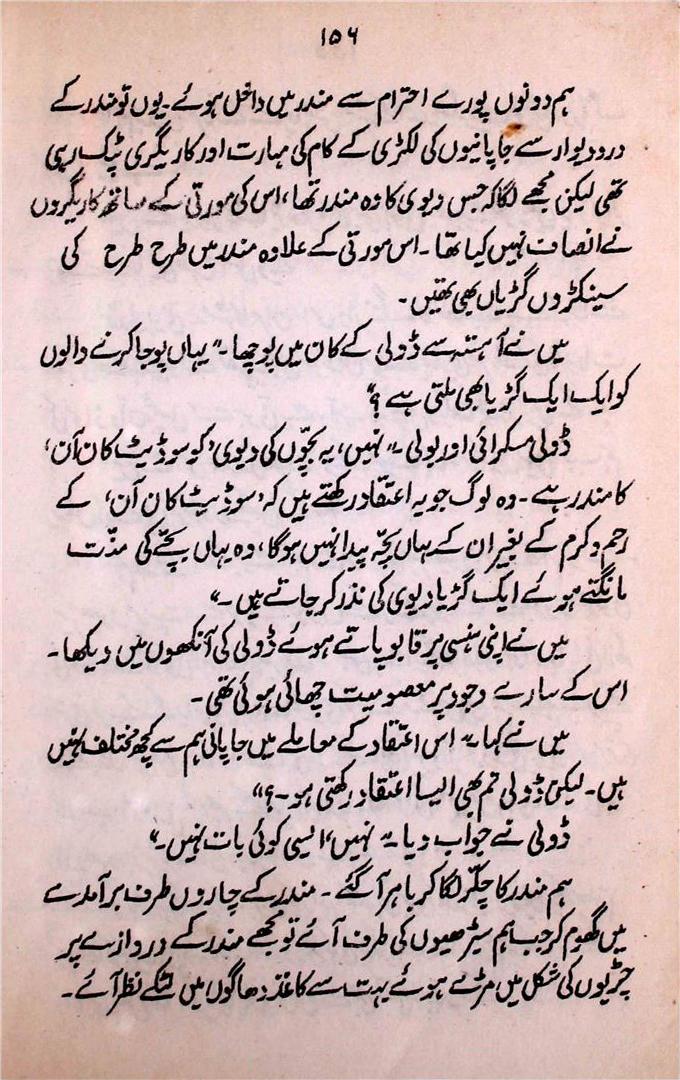 ۱۵۶
ہم دونوں پورے احترام سے مندر میں داخل ہوئے۔ یوں تو مندر کے
در و دیوار سے جاپانیوں کی لکڑی کے کام کی مہارت اور کاریگری ٹپک رہی
تھی لیکن مجھے لگا کہ جس دیوی کا وہ مندر تھا، اس کی مورتی کے ساتھ کاریگروں
نے انصاف نہیں کیا تھا۔ اس مورتی کے علاوہ مندر میں طرح طرح کی
سینکڑوں گڑیاں بھی تھیں۔
میں نے آہستہ سے ڈولی کے کان میں پوچھا۔ ”یہاں پوجا کرنے والوں
کو ایک ایک گڑیا بھی ملتی ہے؟“
ڈولی مسکرائی اور بولی۔ ”نہیں، یہ بچّوں کی دیوی ’کو سوڈیٹ کان آن‘
کا مندر ہے۔ وہ لوگ جو یہ اعتقاد رکھتے ہیں کہ ’سوڈیٹ کان آن‘ کے
رحم و کرم کے بغیر ان کے ہاں بچّہ پیدا نہیں ہوگا، وہ یہاں بچّے کی منّت
مانگتے ہوئے ایک گڑیا دیوی کی نذر کر جاتے ہیں۔“
میں نے اپنی ہنسی پر قابو پاتے ہوئے ڈولی کی آنکھوں میں دیکھا۔
اس کے سارے وجود پر معصومیت چھائی ہوئی تھی۔
میں نے کہا۔ ”اس اعتقاد کے معاملے میں جاپانی ہم سے کچھ مختلف نہیں
ہیں۔ لیکن ڈولی تم بھی ایسا اعتقاد رکھتی ہو۔؟“
ڈولی نے جواب دیا۔ ”نہیں، ایسی کوئی بات نہیں۔“
ہم مندر کا چکّر لگا کر باہر آ گئے۔ مندر کے چاروں طرف برآمدے
میں گھوم کر جب ہم سیڑھیوں کی طرف آئے تو مجھے مندر کے دروازے پر
چڑیوں کی شکل میں مڑے ہوئے بہت سے کاغذ دھاگوں میں لٹکے نظر آئے۔